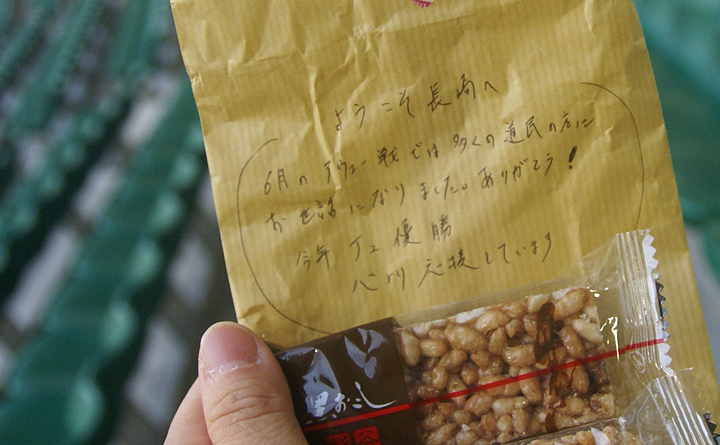 ようこそ長崎へ
6月のアウェー戦では多くの道民の方に
お世話になりました。ありがとう!
今年 J2 優勝
心から応援しています
黒おこし